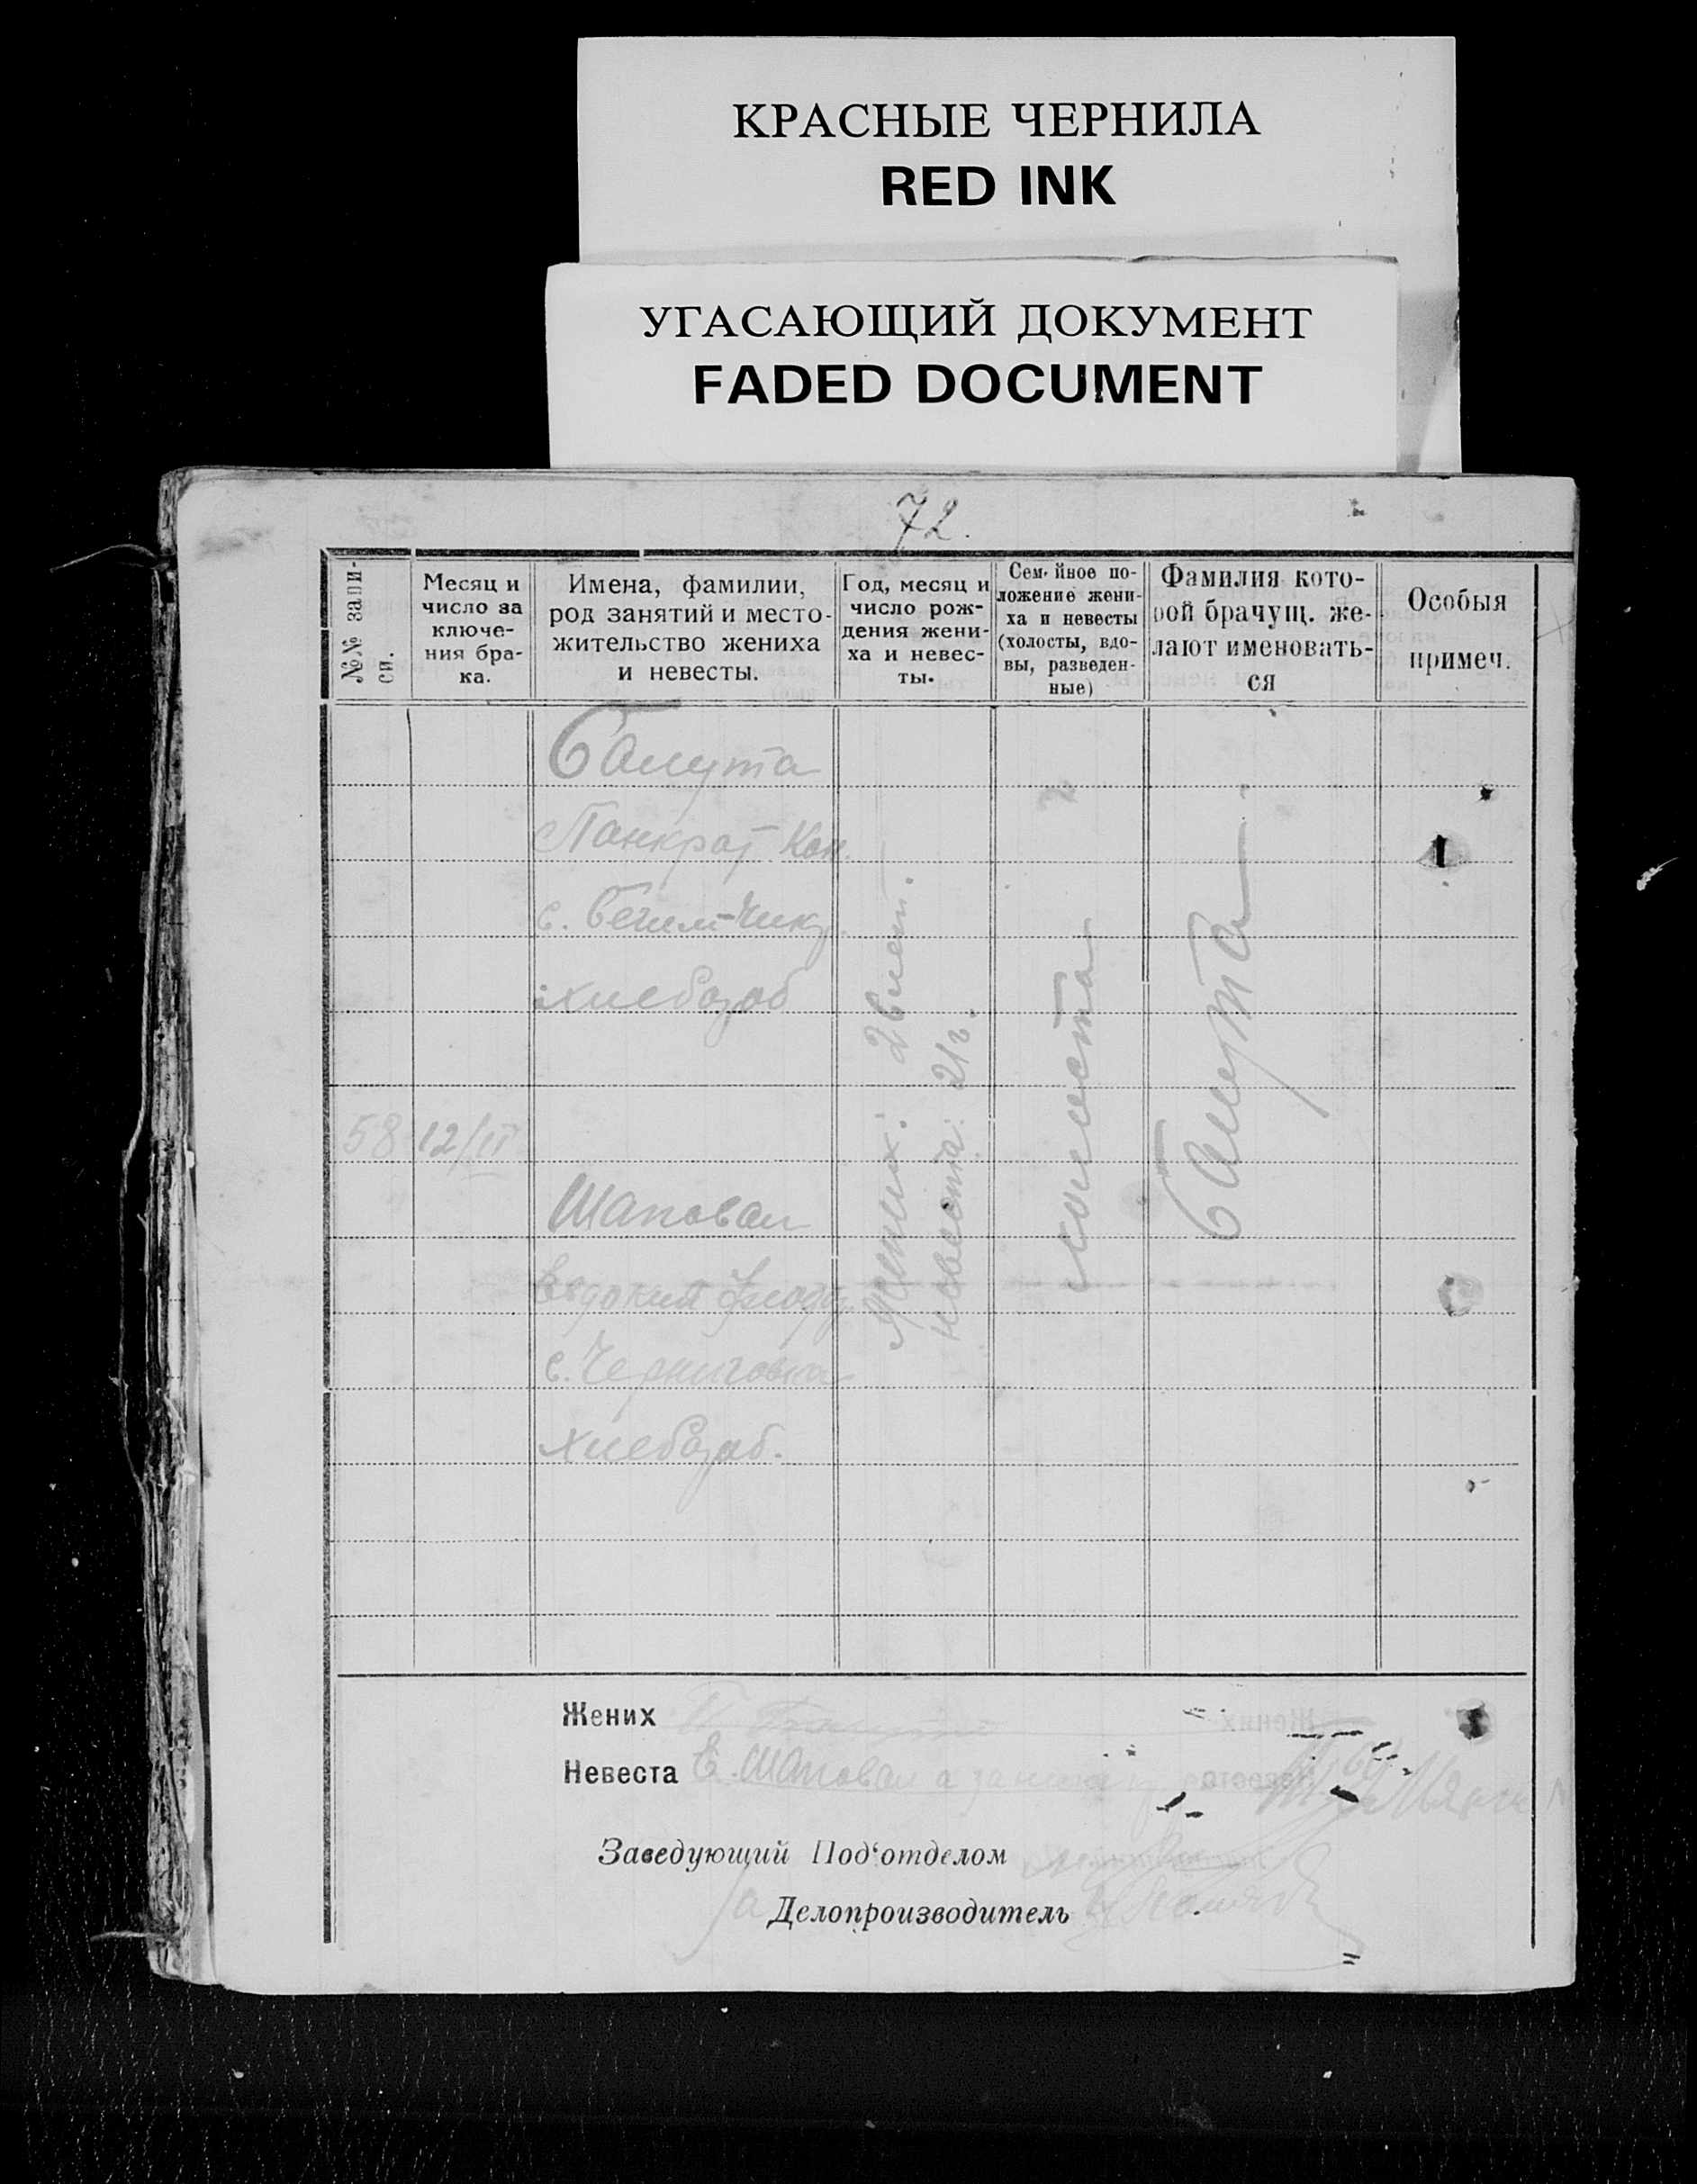 КРАСНЫЕ ЧЕРНИЛА
RED INK
УГАСАЮЩИЙ ДОКУМЕНТ
FADED DOCUMENT
72.
№№ запи-
си.
Месяц и
число за
ключе-
ния бра-
ка.
Имена, фамилии,
род занятий и место-
жительство жениха
и невесты.
Год, месяц и
число рож-
дения жени-
ха и невес-
ты.
Семейное по-
ложение жени-
ха и невесты
(холосты, вдо-
вы, разведен-
ные)
Фамилия кото-
рой брачущ. же-
лают именовать-
ся
Особыя
примеч.
58
12/II
Балута
Панкрат Кон.
с.
хлебороб
Шаповал
Евдокия Феод.
с. Черниговка
хлебороб.
Жених: 26 лет.
невеста: 21 г.
холоста
Балута
Жених
Невеста Е. Шаповал а за
Заведующий Под'отделом
За Делопроизводитель